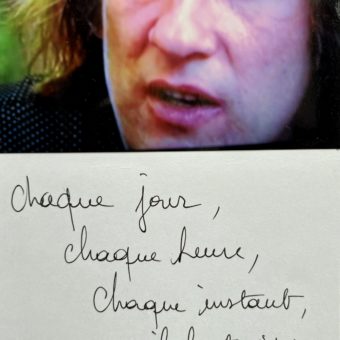 chaque jour,
chaque heure,
chaque instant,